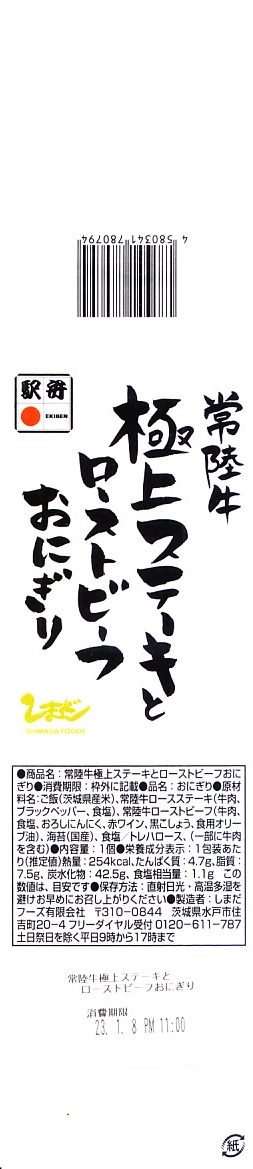 4 580341 780794
駅弁
EKIBEN
常陸牛
極上ステーキと
ローストビーフ
おにぎり
しまだ
SHIMADA FOODS
●商品名：常陸牛極上ステーキとローストビーフおに
ぎり●消費期限：枠外に記載●品名：おにぎり●原材
料名：ご飯(茨城県産米)、常陸牛ロースステーキ(牛肉、
ブラックペッパー、食塩)、常陸牛ローストビーフ(牛肉、
食塩、おろしにんにく、赤ワイン、黒こしょう、食用オリー
ブ油)、海苔(国産)、食塩／トレハロース、(一部に牛肉
を含む)●内容量：1個●栄養成分表示：1包装あた
り(推定値)熱量：254kcal、たんぱく質：4.7g、脂質：
7.5g、炭水化物：42.5g、食塩相当量：1.1g　この
数値は、目安です●保存方法：直射日光・高温多湿を
避けお早めにお召し上がりください●製造者：しまだ
フーズ有限会社　〒310-0844　茨城県水戸市住
吉町20-4 フリーダイヤル受付 0120-611-787
土日祭日を除く平日9時から17時まで
常陸牛極上ステーキと
ローストビーフおにぎり
消費期限
23. 1. 8 PM 11:00
紙